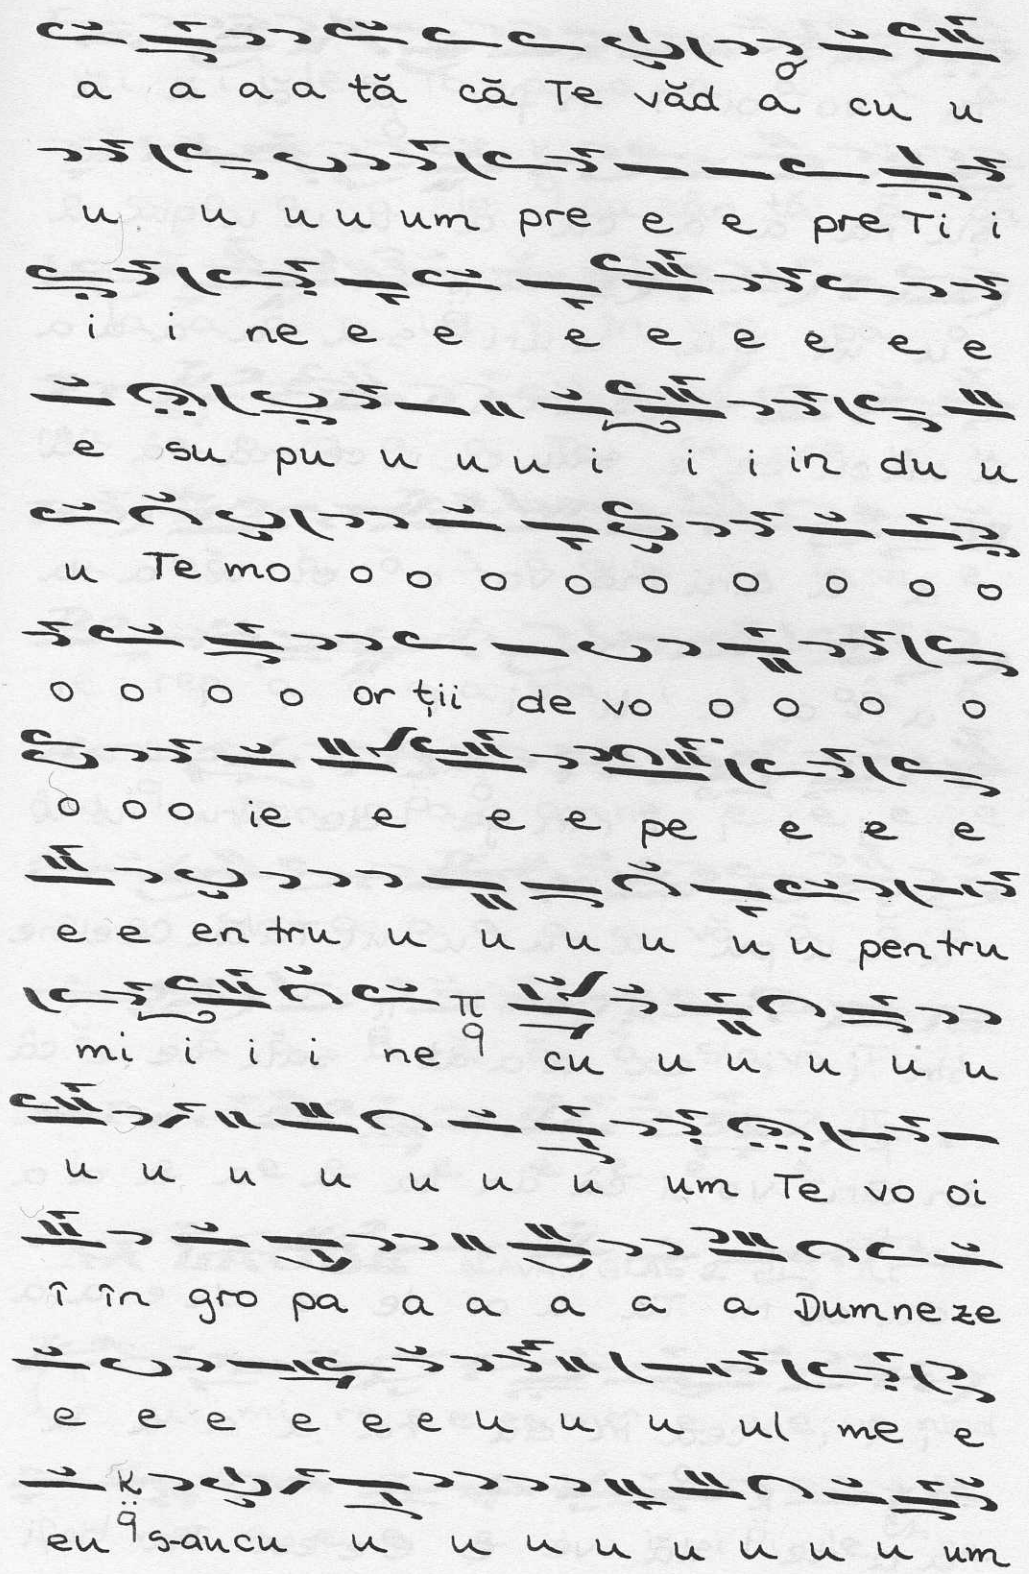 a a a a tă că Te văd a cu u
u u u u um pre e e pre Ti i
i i ne e e e e e e e e
e su pu u u u i i i in du u
u Te mo o o o o o o o o o
o o o o or ții de vo o o o o
o o o ie e e e pe e e e
e e en tru u u u u u u pen tru
mi i i i ne π q cu u u u u u
u u u u u u u um Te vo oi
î în gro pa a a a a a Dumne ze
e e e e e e u u u ul me e
eu K q s-au cu u u u u u u u u um